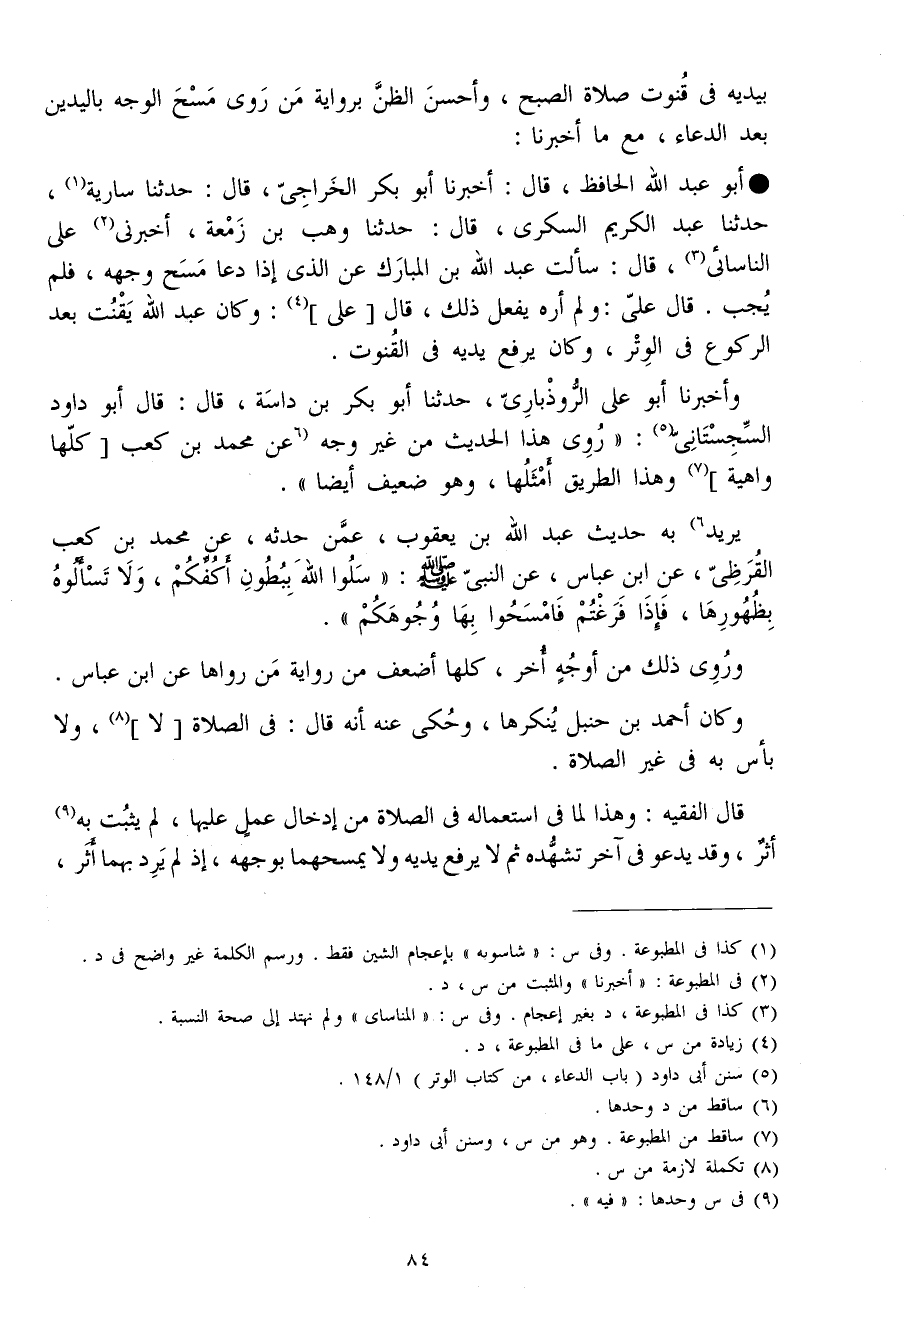 بيديه فى قُنوت صلاة الصبح ، وأحسنَ الظنَّ برواية مَن رَوى مَسْحَ الوجه باليدين
بعد الدعاء ، مع ما أخبرنا :
● أبو عبد الله الحافظ ، قال : أخبرنا أبو بكر الخَراجِىّ ، قال : حدثنا سارية(١) ،
حدثنا عبد الكريم السكرى ، قال : حدثنا وهب بن زَمْعة ، أخبرنى(٢) على
الناسائى(٣) ، قال : سألت عبد الله بن المبارَك عن الذى إذا دعا مَسَح وجهه ، فلم
يُجب . قال علىّ : ولم أره يفعل ذلك ، قال [ على ](٤) : وكان عبد الله يَقْنُت بعد
الركوع فى الوِتْر ، وكان يرفع يديه فى القُنوت .
وأخبرنا أبو على الرُّوذْبارِىّ ، حدثنا أبو بكر بن داسَة ، قال : قال أبو داود
السِّجِسْتَانِىّ(٥) : « رُوِى هذا الحديث من غير وجه (٦عن محمد بن كعب [ كلّها
واهية ](٧) وهذا الطريق أَمْثَلُها ، وهو ضعيف أيضا » .
يريد٦) به حديث عبد الله بن يعقوب ، عمَّن حدثه ، عن محمد بن كعب
القُرَظِىّ ، عن ابن عباس ، عن النبىّ ﷺ : « سَلُوا اللهَ بِبُطُونِ أَكُفِّكُمْ ، وَلَا تَسْأَلُوهُ
بِظُهُورِهَا ، فَإِذَا فَرَغْتُمْ فَامْسَحُوا بِهَا وُجُوهَكُمْ » .
ورُوِى ذلك من أوجُهٍ أُخر ، كلها أضعف من رواية مَن رواها عن ابن عباس .
وكان أحمد بن حنبل يُنكرها ، وحُكى عنه أنه قال : فى الصلاة [ لا ](٨) ، ولا
بأس به فى غير الصلاة .
قال الفقيه : وهذا لما فى استعماله فى الصلاة من إدخال عملٍ عليها ، لم يثبُت به(٩)
أثرٌ ، وقد يدعو فى آخر تشهُّده ثم لا يرفع يديه ولا يمسحهما بوجهه ، إذ لم يَرِد بهما أثَر ،
(١) كذا فى المطبوعة . وفى س : « شاسوبه » بإعجام الشين فقط . ورسم الكلمة غير واضح فى د .
(٢) فى المطبوعة : « أخبرنا » والمثبت من س ، د .
(٣) كذا فى المطبوعة ، د بغير إعجام . وفى س : « المناساى » ولم نهتد إلى صحة النسبة .
(٤) زيادة من س ، على ما فى المطبوعة ، د .
(٥) سنن أبى داود ( باب الدعاء ، من كتاب الوتر ) ١٤٨/١ .
(٦) ساقط من د وحدها .
(٧) ساقط من المطبوعة . وهو من س ، وسنن أبى داود .
(٨) تكملة لازمة من س .
(٩) فى س وحدها : « فيه » .
٨٤